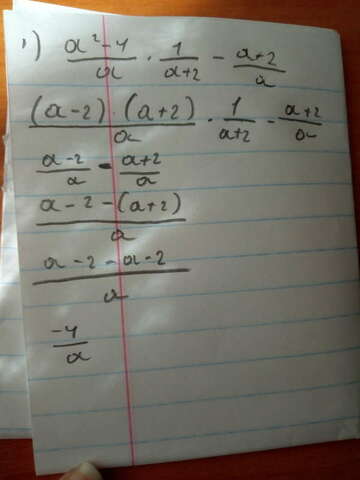 1) (a²-4)/a · 1/(a+2) - (a+2)/a
((a-2)·(a+2))/a · 1/(a+2) - (a+2)/a
(a-2)/a - (a+2)/a
(a-2-(a+2))/a
(a-2-a-2)/a
-4/a